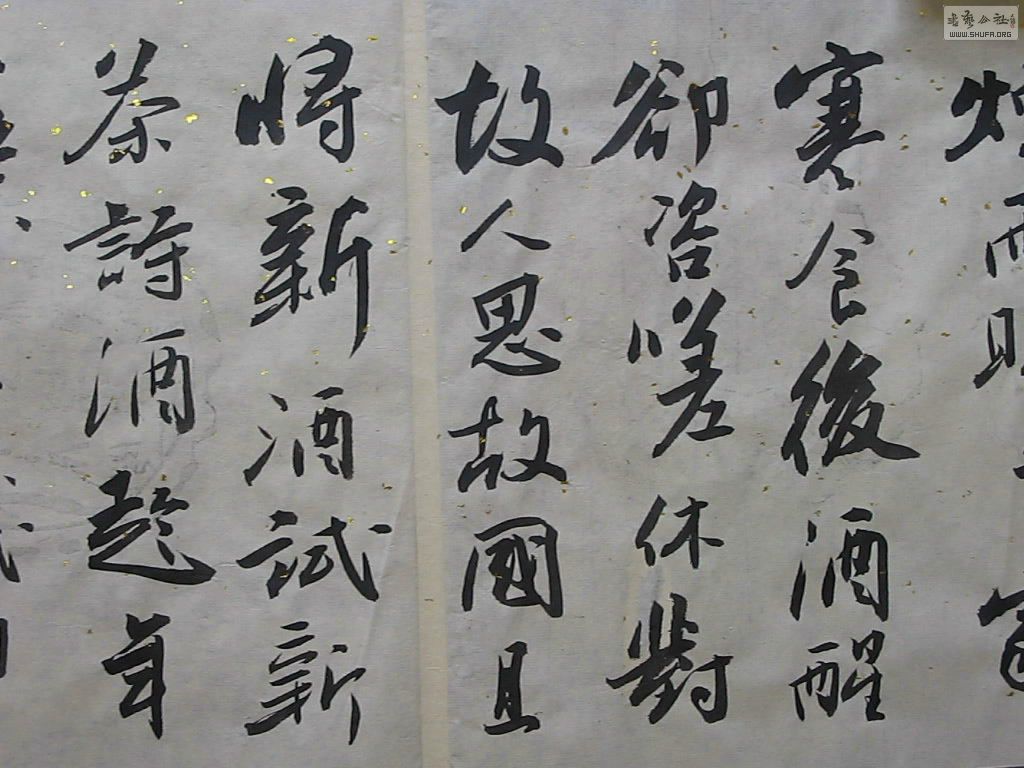 寒食後酒醒
卻咨嗟休對
故人思故國且
將新酒試新
茶詩酒趁年
書藝公社
WWW.SHUFA.ORG